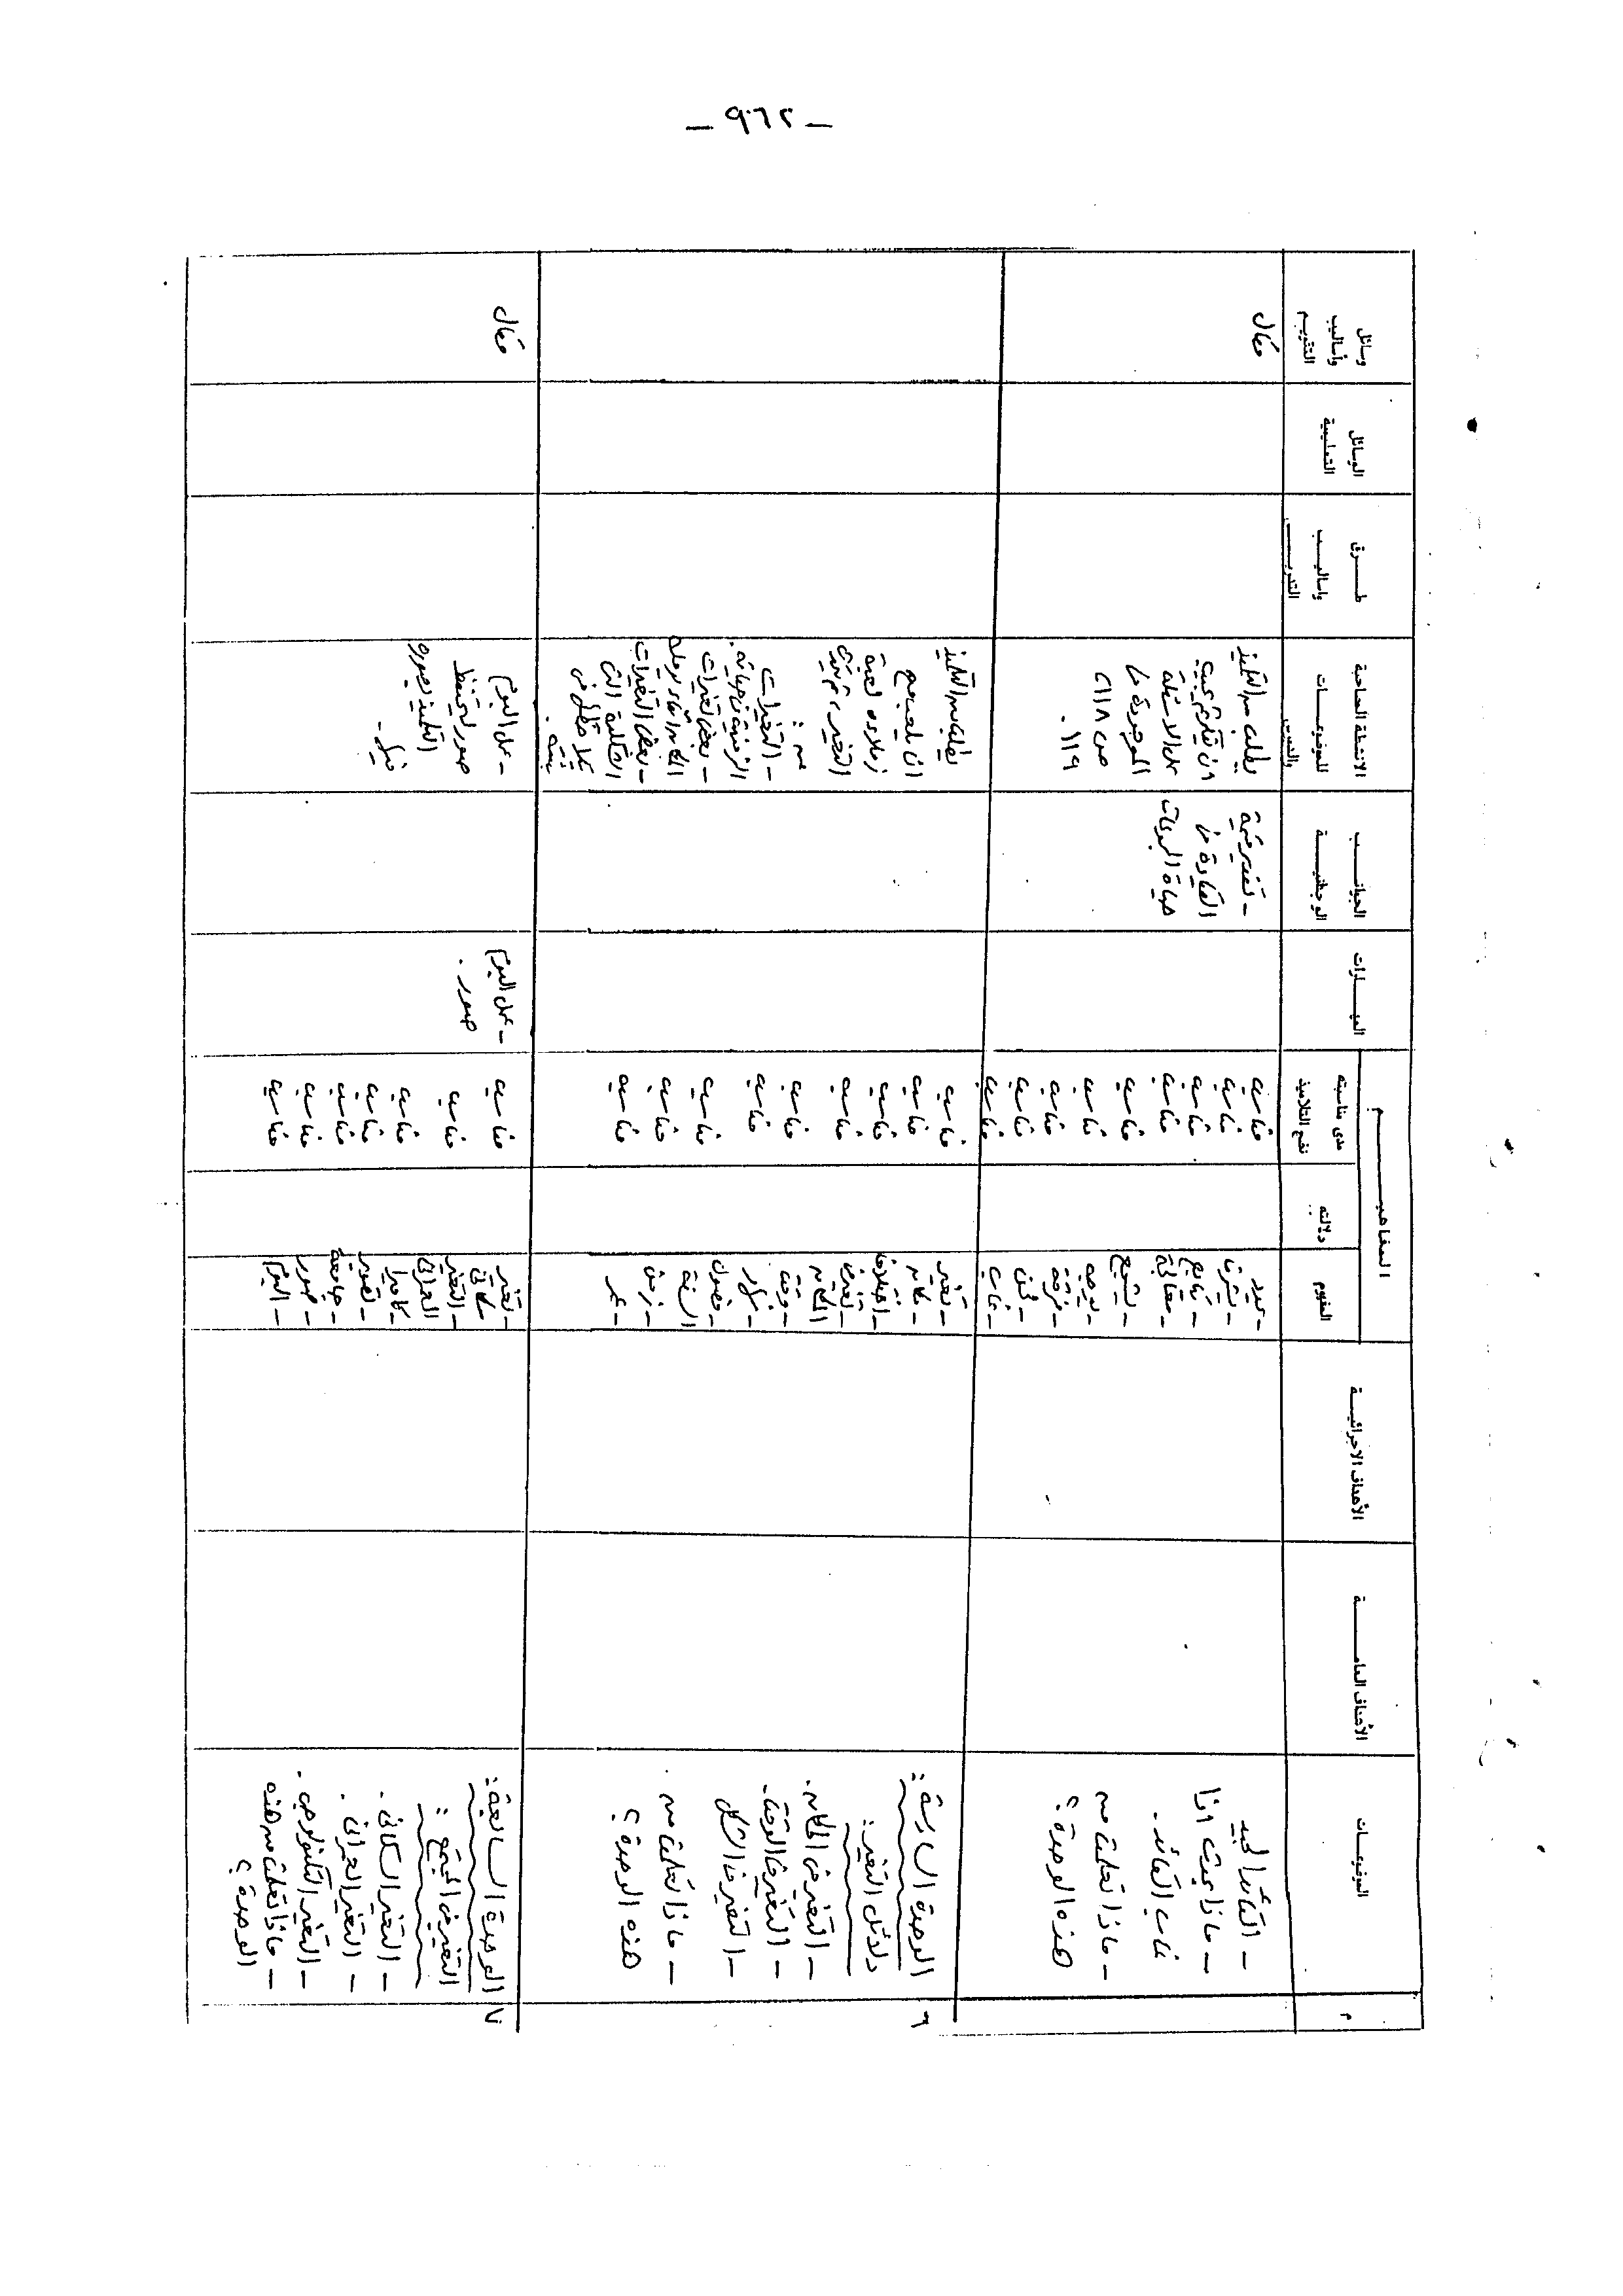 - ٩٦٢ -
م
الموضوعات
الأهداف العامة
الأهداف الاجرائية
المفاهيم
المفهوم
دلالته
مدى مناسبته
نضج التلاميذ
المهارات
الجوانب
الوجدانية
الانشطة المصاحبة
للموضوعات
طرق
واساليب
التدريس
الوسائل
التعليمية
وسائل
وأساليب
التقويم
- القائد الجيد
- ماذا يحدث اذا
غاب القائد.
- ماذا تعلمت من
هذه الوحدة ؟
- يشرف
- يتابع
- يشجع
- يوجه
- فرقة
- غاب
مناسب
مناسب
مناسب
مناسب
مناسب
مناسب
مناسب
مناسب
مناسب
- تقدير قيمة
القيادة فى
حياة الجماعات
يطلب من التلميذ
على الاسئلة
الموجودة فى
ص ١١٨،
١١٩.
مقال
٦
الوحدة السادسة :
دلائل التغير :
- التغير فى المكان.
- التغير فى الوقت.
- التغير فى الشكل
- ماذا تعلمت من
هذه الوحدة ؟
- تغير
- مكان
- اختلاف
- تغير فى
المكان
- وقت
- فصول
السنة
- زمن
مناسب
مناسب
مناسب
مناسب
مناسب
مناسب
مناسب
مناسب
مناسب
يطلب من التلميذ
ان يلعب مع
زملائه لعبة
عن :
- التغيرات
الزمنية فى حياته.
- بعض تغيرات
- بعض التغيرات
الشكلية التى
بيته.
٧
الوحدة السابعة :
التغير فى المجتمع :
- التغير السكانى .
- التغير العمرانى .
- التغير التكنولوجى .
- ماذا تعلمت من هذه
الوحدة ؟
- تغير
سكانى
- التغير
العمرانى
- كاميرا
- تصوير
- جامعة
- صور
- البوم
مناسب
مناسب
مناسب
مناسب
مناسب
مناسب
مناسب
- عمل البوم
صور .
- عمل البوم
صور ليحتفظ
التلميذ بصوره
فيه .
مقال